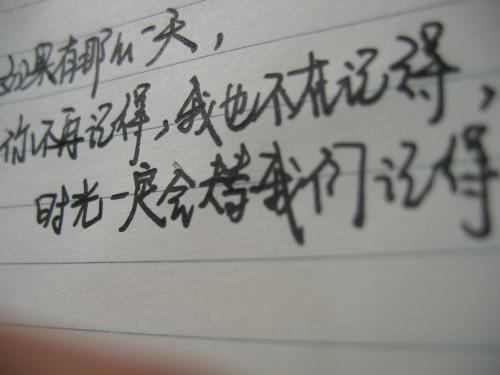 如果有那么一天，
你不再记得，我也不在记得，
时光一定会替我们记得